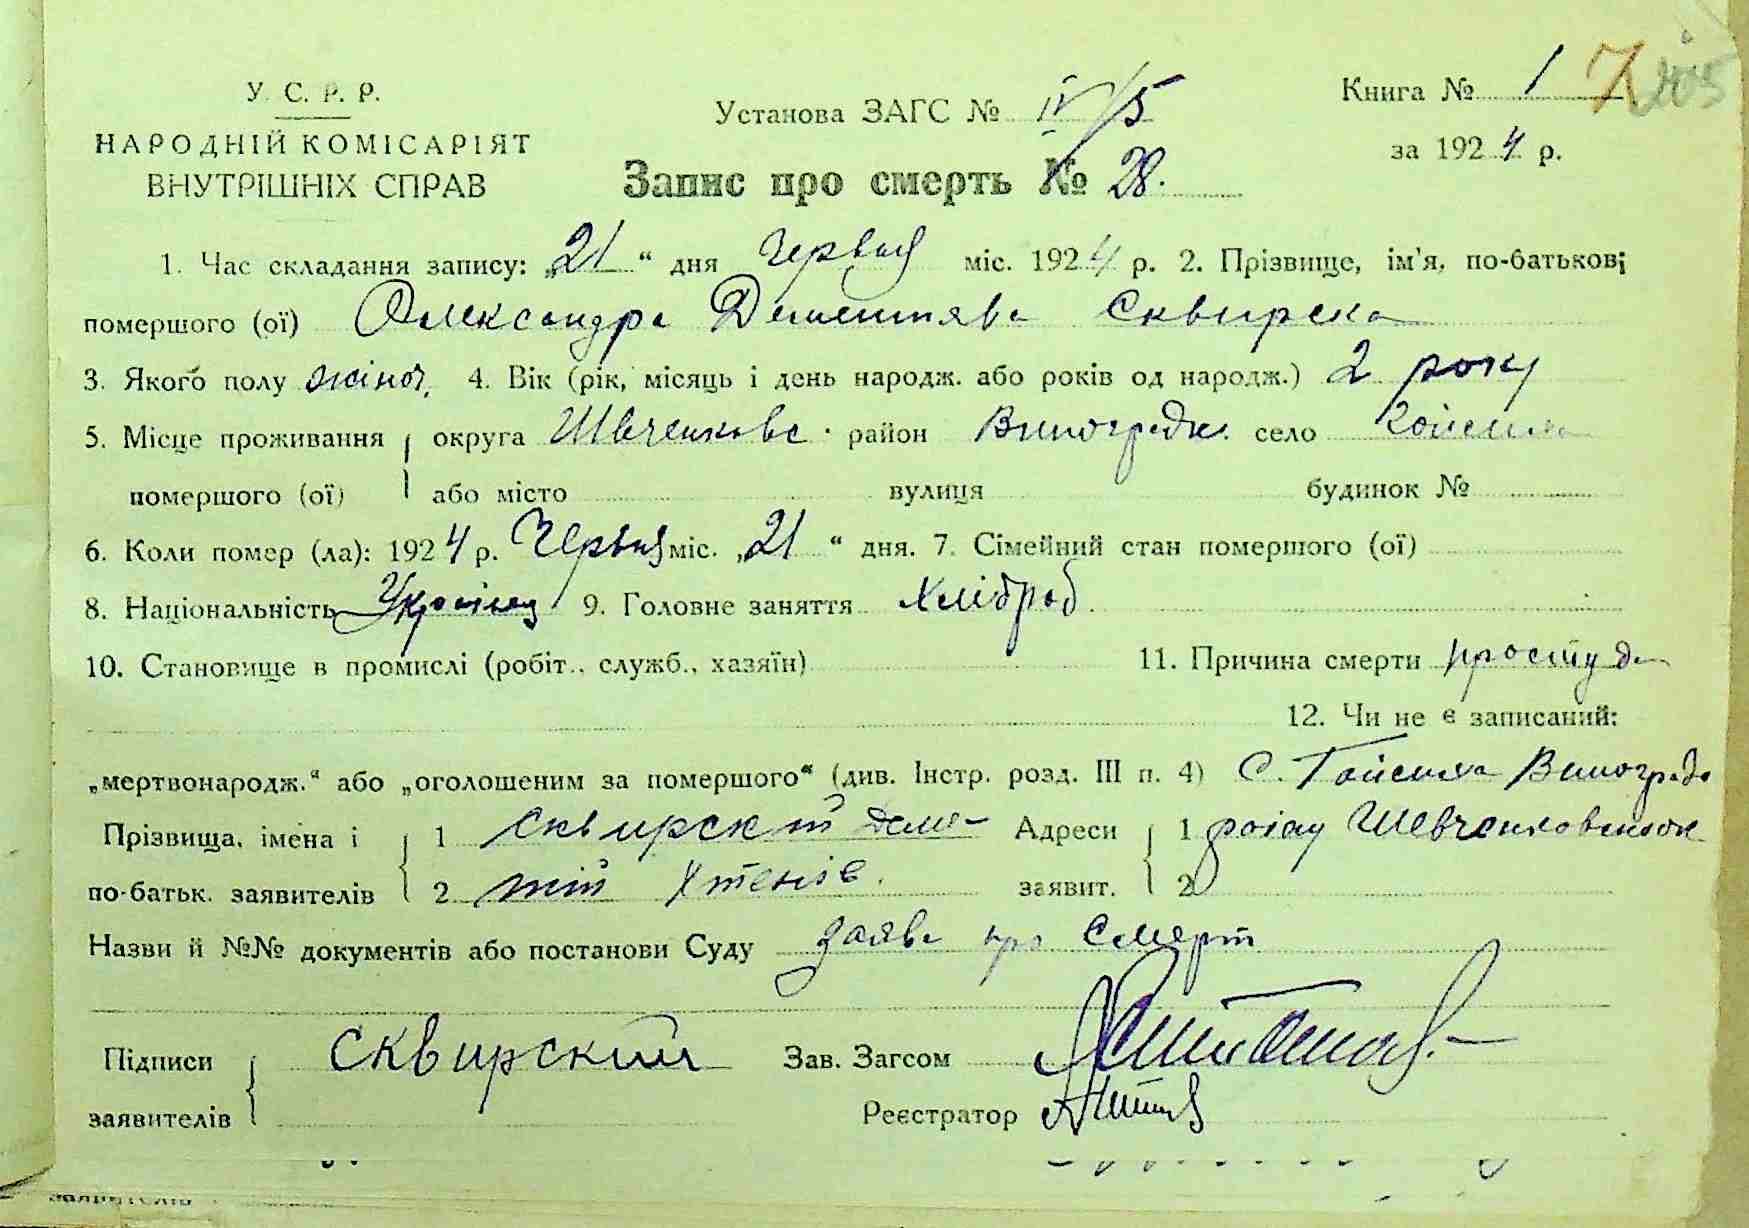 У. С. Р. Р.
НАРОДНІЙ КОМІСАРІЯТ
ВНУТРІШНІХ СПРАВ
Установа ЗАГС № IV/5
Запис про смерть № 28.
Книга № 1
за 1924 р.
1. Час складання запису: „21“ дня Червня міс. 1924 р. 2. Прізвище, ім'я, по-батькові
помершого (ої) Олександра Дементява Сквирска
3. Якого полу жіноч. 4. Вік (рік, місяць і день народж. або років од народж.) 2 року
5. Місце проживання округа Шевченковс. район Виноградс. село
помершого (ої) або місто вулиця будинок №
6. Коли помер (ла): 1924 р. Червня міс. „21“ дня. 7. Сімейний стан помершого (ої)
8. Національність 9. Головне заняття Хлібороб
10. Становище в промислі (робіт., служб., хазяїн) 11. Причина смерти простуда
12. Чи не є записаний:
„мертвонародж.“ або „оголошеним за помершого“ (див. Інстр. розд. III п. 4) С. Виноградс
Прізвища, імена і 1 Сквирский Деме- Адреси 1 Шевченковской
по-батьк. заявителів 2 тій заявит. 2
Назви й №№ документів або постанови Суду Заява про Смерт
Підписи Сквирский Зав. Загсом
заявителів Реєстратор
заявителів